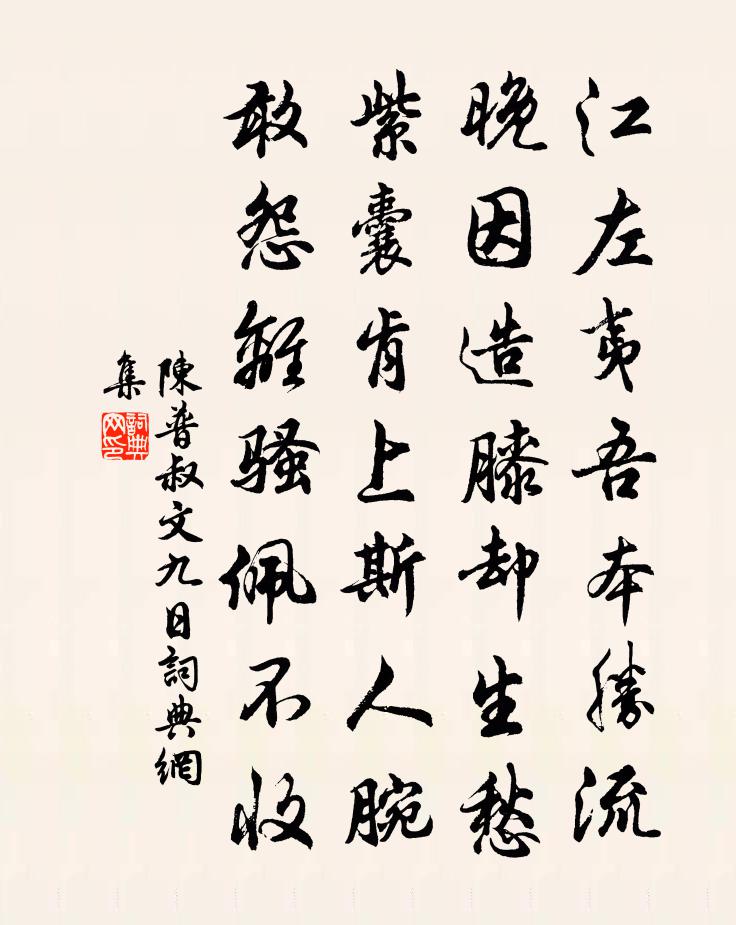 江左夷吾本勝流
晚因造膝却生愁
紫囊肯上斯人腕
敢怨離騷佩不收
陳普叔文九日詞典網
集
詞典
网印